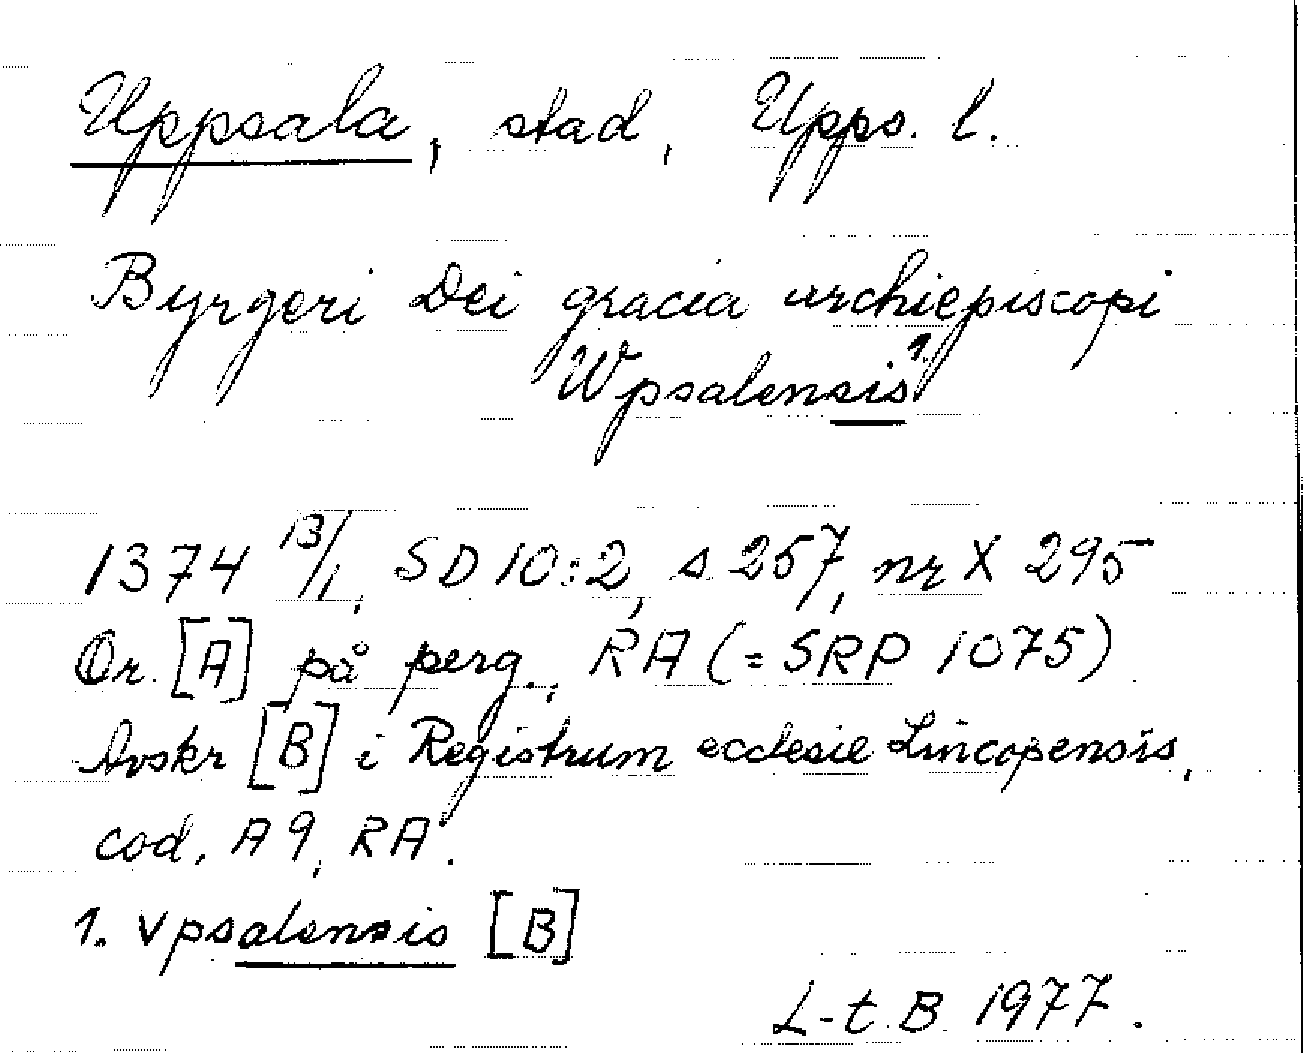 Uppsala, stad, Upps. l.
Byrgeri Dei gracia archiepiscopi
Wpsalensis 1.
1374 13/1, SD 10:2, s 257, nr X 295
Or. [A] på perg., RA (= SRP 1075)
Avskr [B] i Registrum ecclesie Lincopensis,
cod. A 9, RA.
1. vpsalensis [B]
L-t. B. 1977.